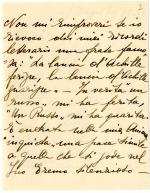 2
Non mi rimproveri se io
rievoco dai miei ricordi
letterari una frase famo-
sa: la lancia d'Achille
ferisce, la lancia d'Achille
guarisce. - In verità un
Russo, mi ha ferita,
un Russo, mi ha guarita.
È entrata nella mia anima
inquieta, una pace simile
a quella che si gode nel
suo Eremo silenzioso -